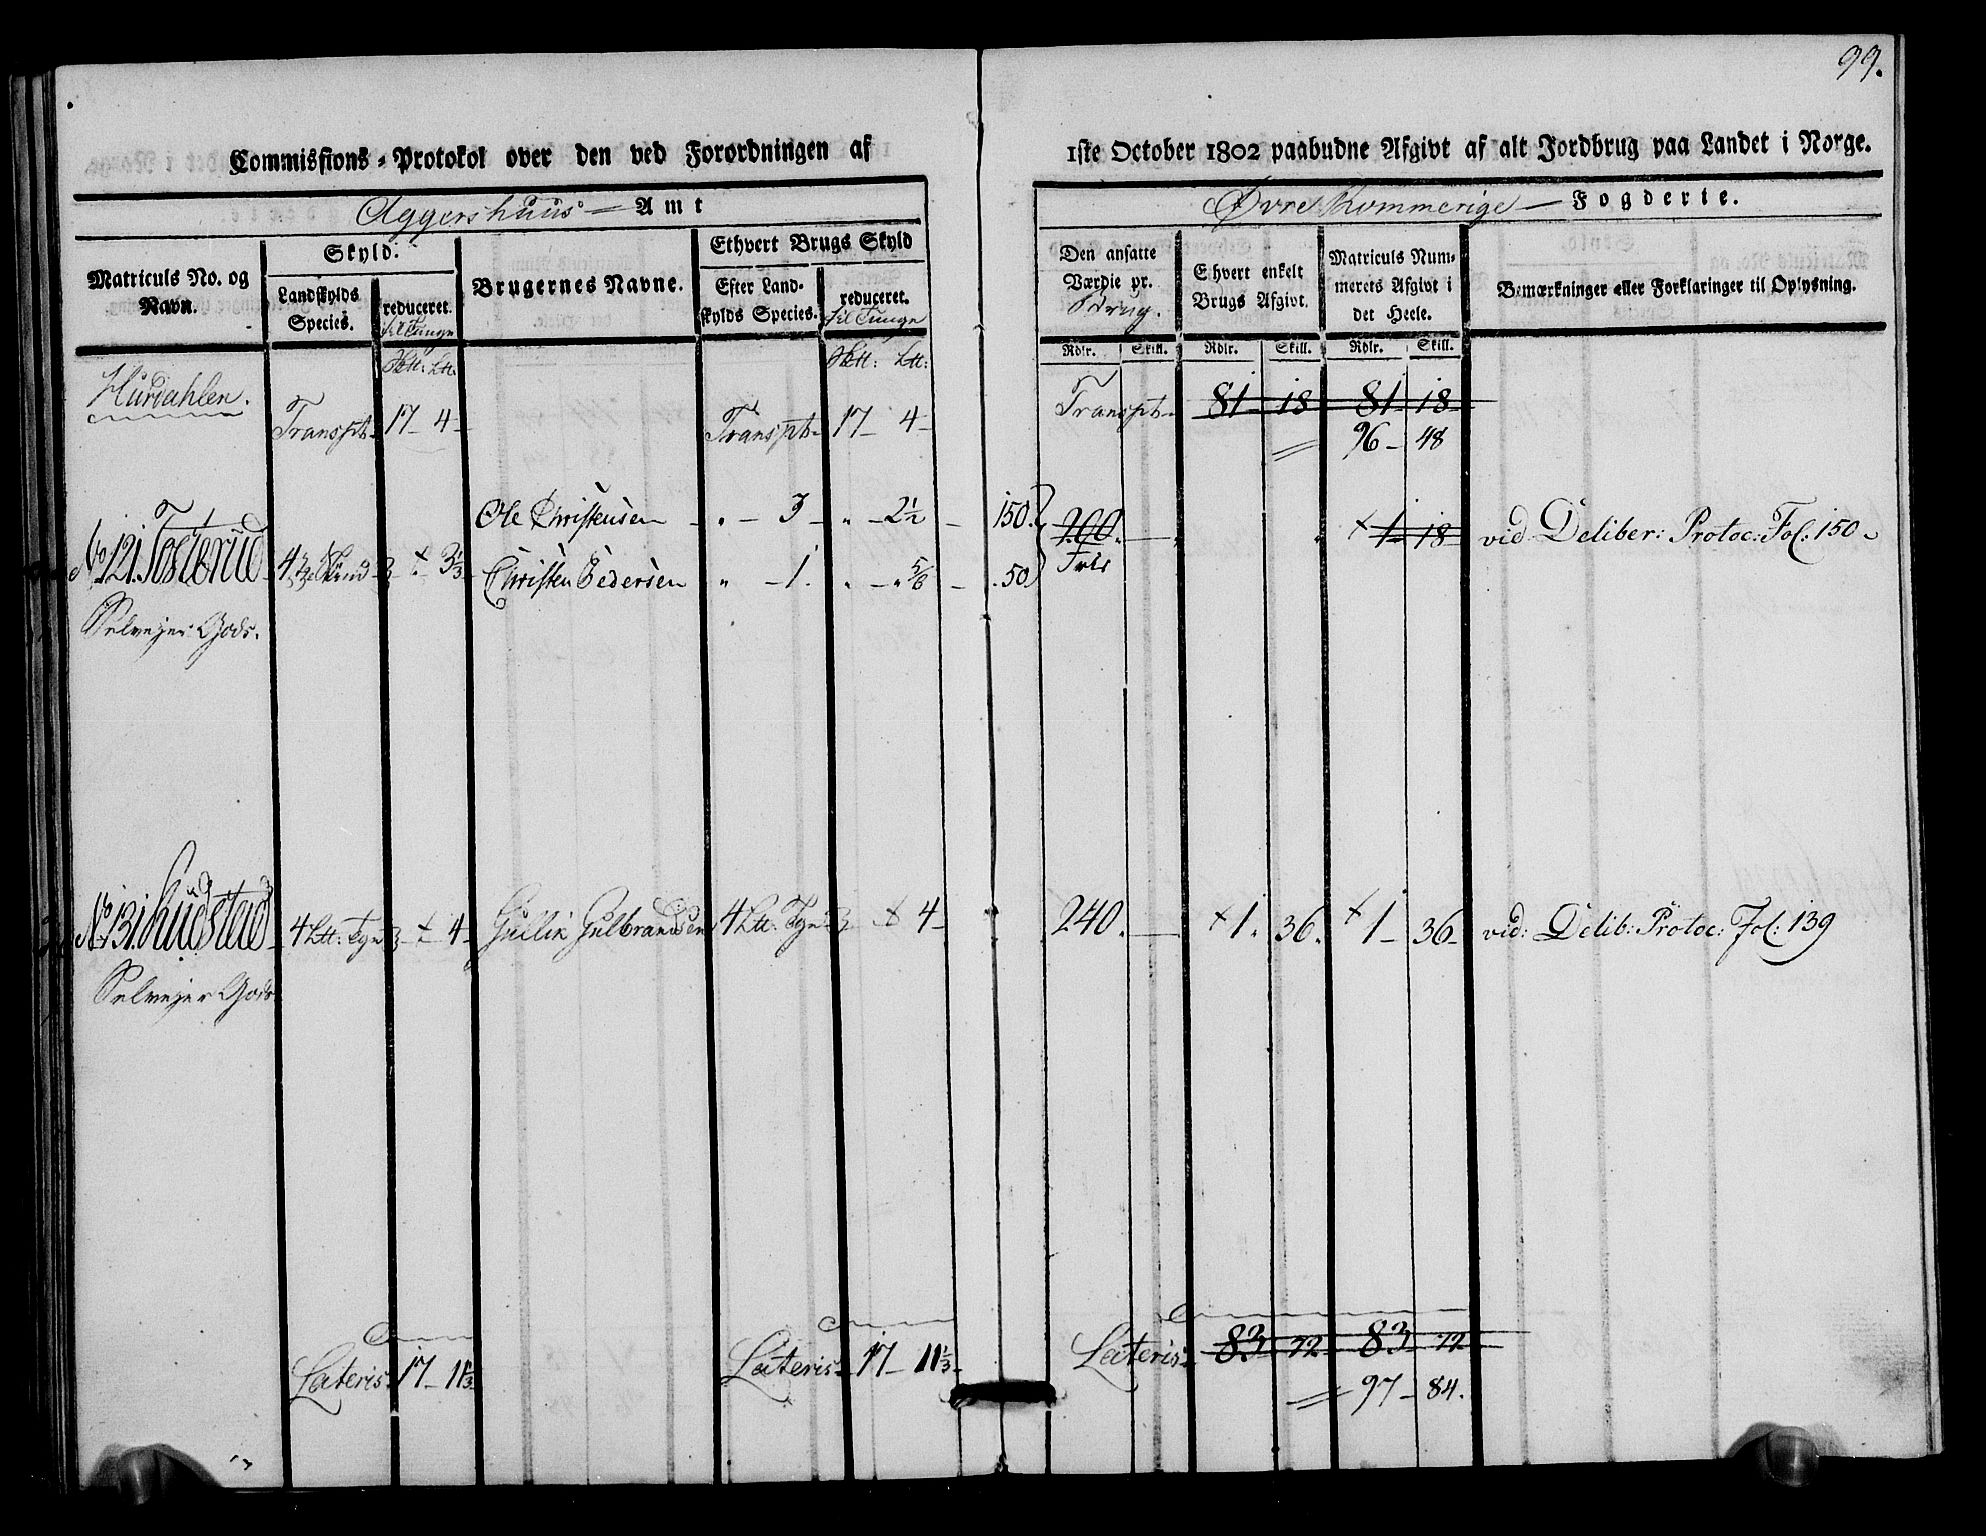 99.
Commissions-Protokol over den ved Forordningen af 1ste October 1802 paabudne Afgivt af alt Jordbrug paa Landet i Norge.
Aggershuus Amt
Øvre Rommerige Fogderie.
Matriculs No. og Navn.
Skyld.
Landskylds Species.
reduceret. til Tunge
Brugernes Navne.
Ethvert Brugs Skyld
Efter Landskylds Species.
reduceret. til Tunge
Den ansatte Værdie pr. Brug.
Ehvert enkelt Brugs Afgivt.
Matriculs Nummerets Afgivt i det Heele.
Bemærkninger eller Forklaringer til Oplysning.
Rdlr. Skill. Rdlr. Skill. Rdlr. Skill.
Hurdahlen.
Transpt 17 - 4 - Transpt 17 - 4 - Transpt 81 - 18 81 - 18
96 - 48
No 121. Tosterud
Ole Christensen - " - 3 - " - 2½ - 150.
200. 1 - 18 vid Deliber: Protoc: Fol: 150
Christen Pedersen " - 1. " - " 5/6 - 50
Selvejer Gods.
No 131. 4 Ltt: Tge 4 - Gullik Gulbrandsen 4 Ltt: Tge 4 - 240. 1. 36. 1 - 36 - vid: Delib: Protoc: Fol: 139
Selvejer Gods
Lateris 17 - 11⅓ Lateris 17 - 11⅓ - Lateris 83 - 72 83 - 72
97 - 84.